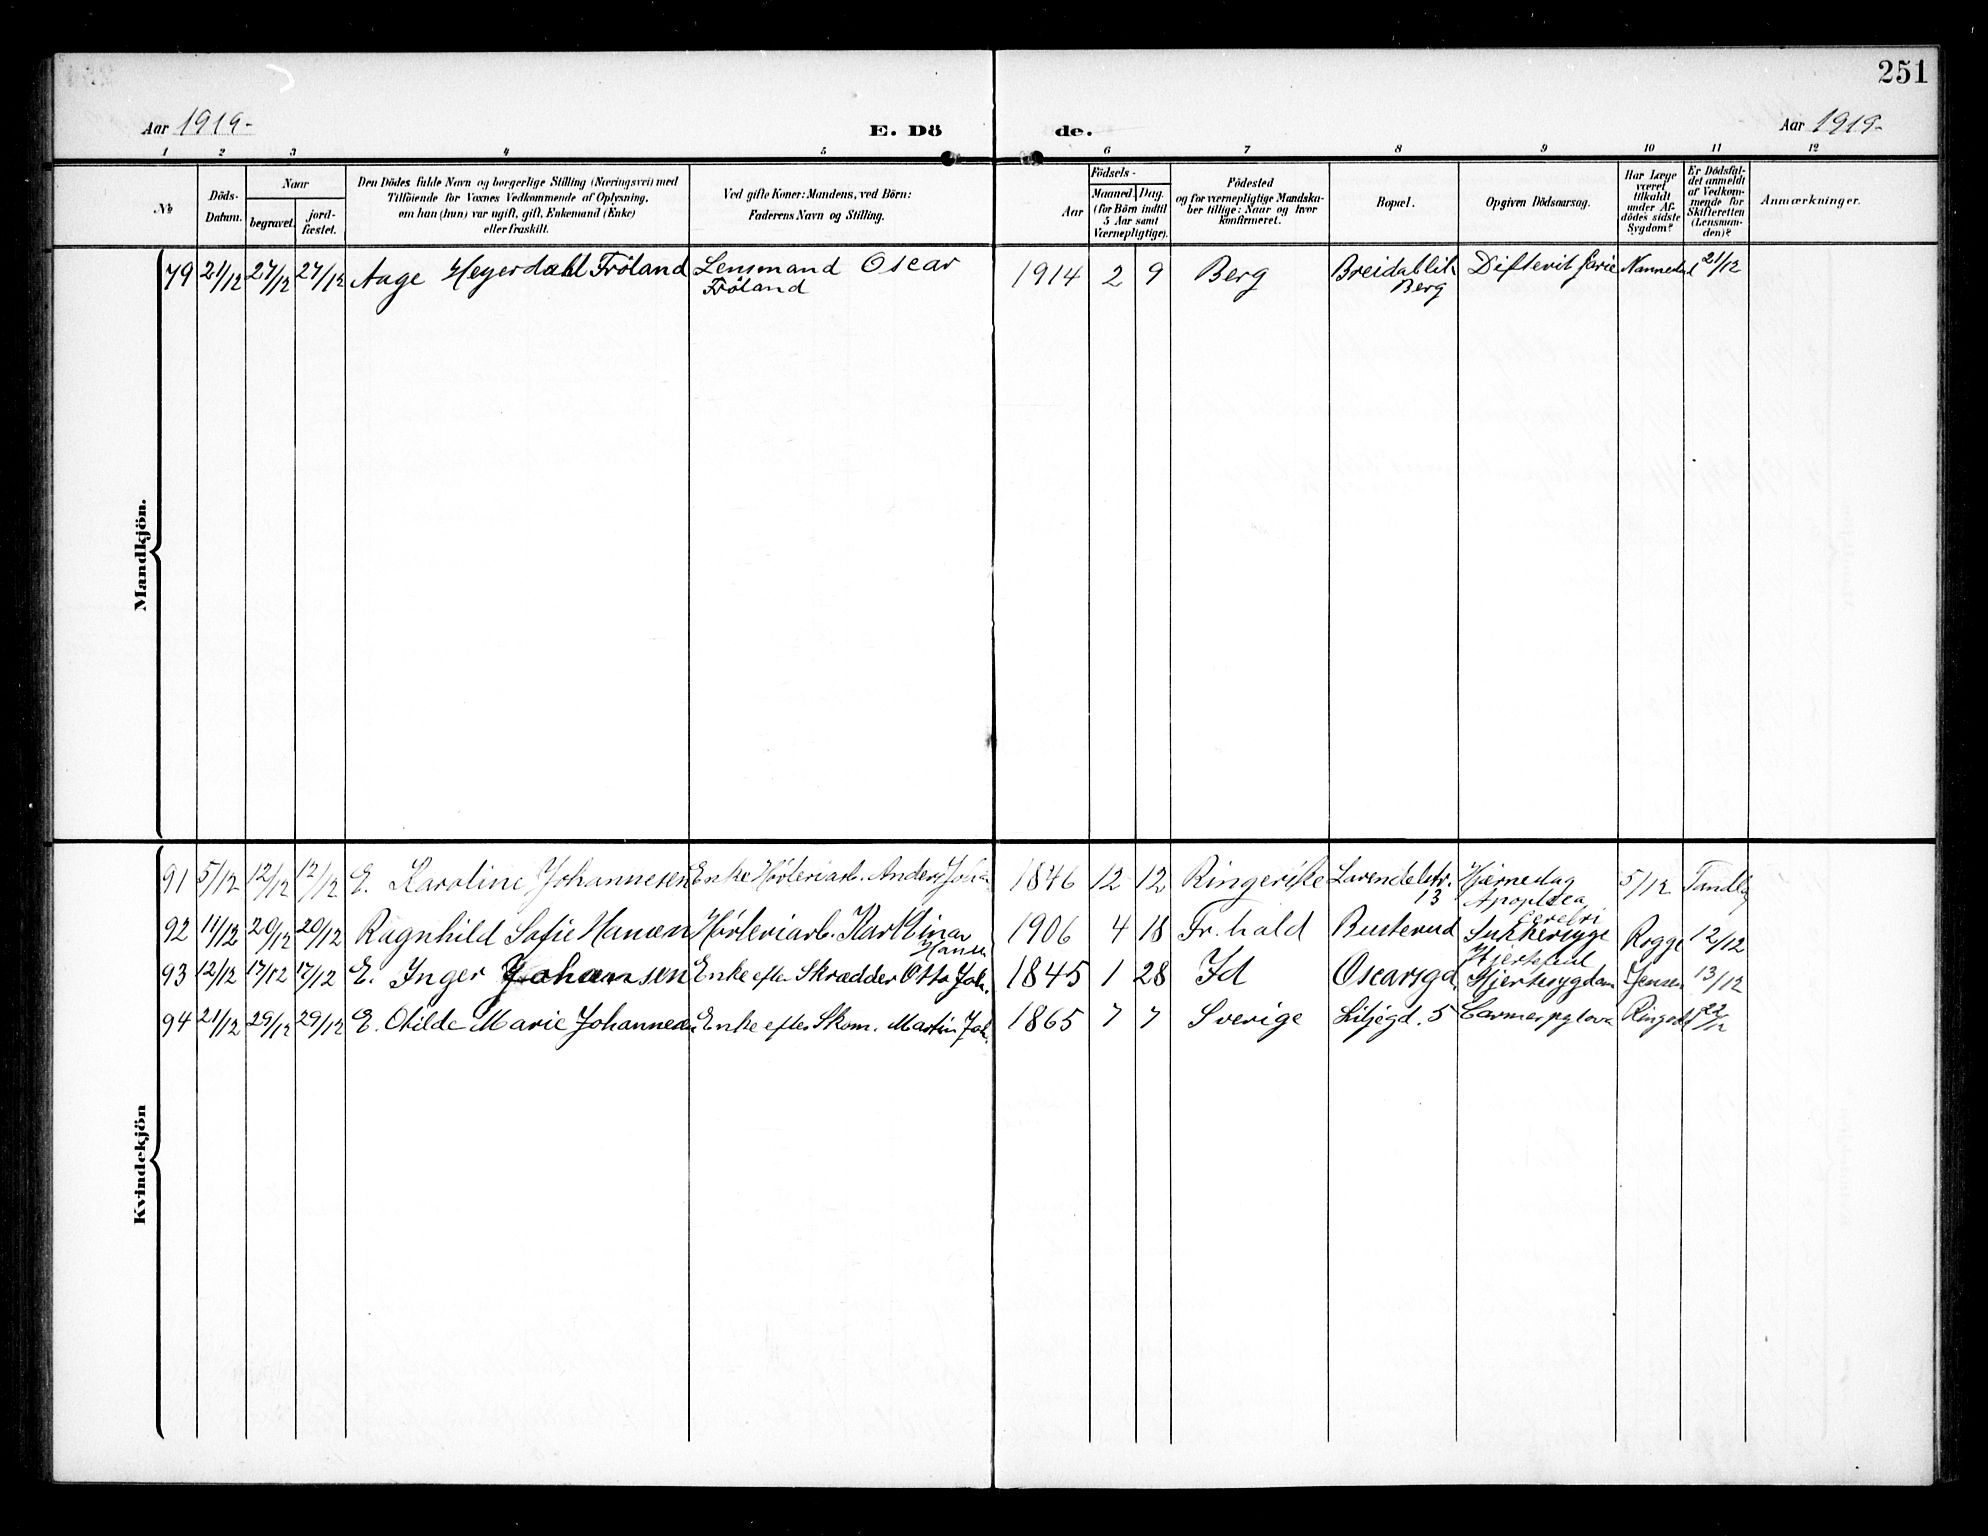 251
Aar 1919-
E. Dö
de.
Aar 1919-
1 2 3 4 5 6 7 8 9 10 11 12
№
Döds-
Datum.
Naar
begravet.
jord-
fæstet.
Den Dödes fulde Navn og borgerlige Stilling (Næringsvei) med
Tilföiende for Voxnes Vedkommende af Oplysning,
om han (hun) var ugift, gift, Enkemand (Enke)
eller fraskilt.
Ved gifte Koner: Mandens, ved Börn:
Faderens Navn og Stilling.
Födsels-
Aar
Maaned. Dag.
(for Börn indtil
5 Aar samt
Værnepligtige).
Födested
og for værnepligtige Mandska-
ber tillige: Naar og hvor
konfirmeret.
Bopæl.
Opgiven Dödsaarsag.
Har Læge
været
tilkaldt
under Af-
dödes sidste
Sygdom?
Er Dödsfal-
det anmeldt
af Vedkom-
mende for
Skifteretten
(Lensman-
den)?
Anmærkninger.
Mandkjön.
79 21/12 27/12 27/12 Aage Heyerdahl Fröland Lensmand Oscar 1914 2 9 Berg Breidablik Difterit 21/12
Fröland Berg
Kvindekjön
91 5/12 12/12 12/12 E. Karoline Johannesen Enke Anders 1846 12 12 Ringerike Lavendelstr. 5/12
13 Apoplexia
cerebri
92 11/12 20/12 20/12 Ragnhild Sofie Hansen Karl Einar 1906 4 18 Fr.hald Busterud Sukkersyge Rogge 12/12
Hansen Hjertefeil
93 12/12 17/12 17/12 E. Inger Johansen Enke efter Skrædder Otto Joh. 1845 1 28 Id Oscarsgd. Hjertesygdom Jensen 13/12
94 21/12 29/12 29/12 E. Otilde Marie Johannesen Enke efter Skom. Martin Joh. 1865 7 7 Sverige Liljegd. 5 22/12